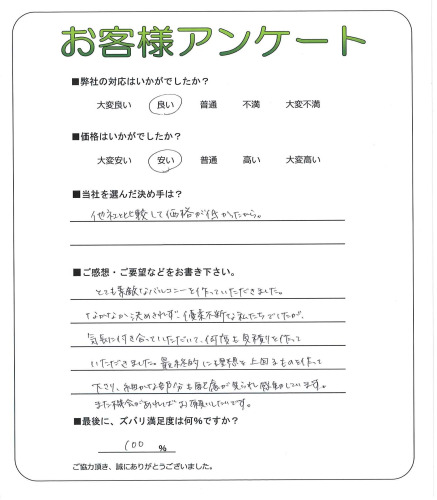 お客様アンケート
■弊社の対応はいかがでしたか？
大変良い 良い 普通 不満 大変不満
■価格はいかがでしたか？
大変安い 安い 普通 高い 大変高い
■当社を選んだ決め手は？
他社と比較して価格が低かったから。
■ご感想・ご要望などをお書き下さい。
とても素敵なバルコニーを作っていただきました。
なかなか決めきれず、優柔不断な私たちでしたが、
気長に付き合っていただいて、何度も見積りを作って
いただきました。最終的にも理想を上回るものを作って
下さり、細かな部分も配慮が見られ感動しています。
また機会があればお願いしたいです。
■最後に、ズバリ満足度は何％ですか？
100 ％
ご協力頂き、誠にありがとうございました。